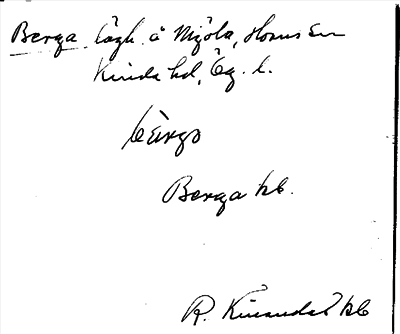 Berga lägh. å Mjöla, Horns sn
Kinda hd, Ög. l.
Berga kb.
R. Kinanders kb